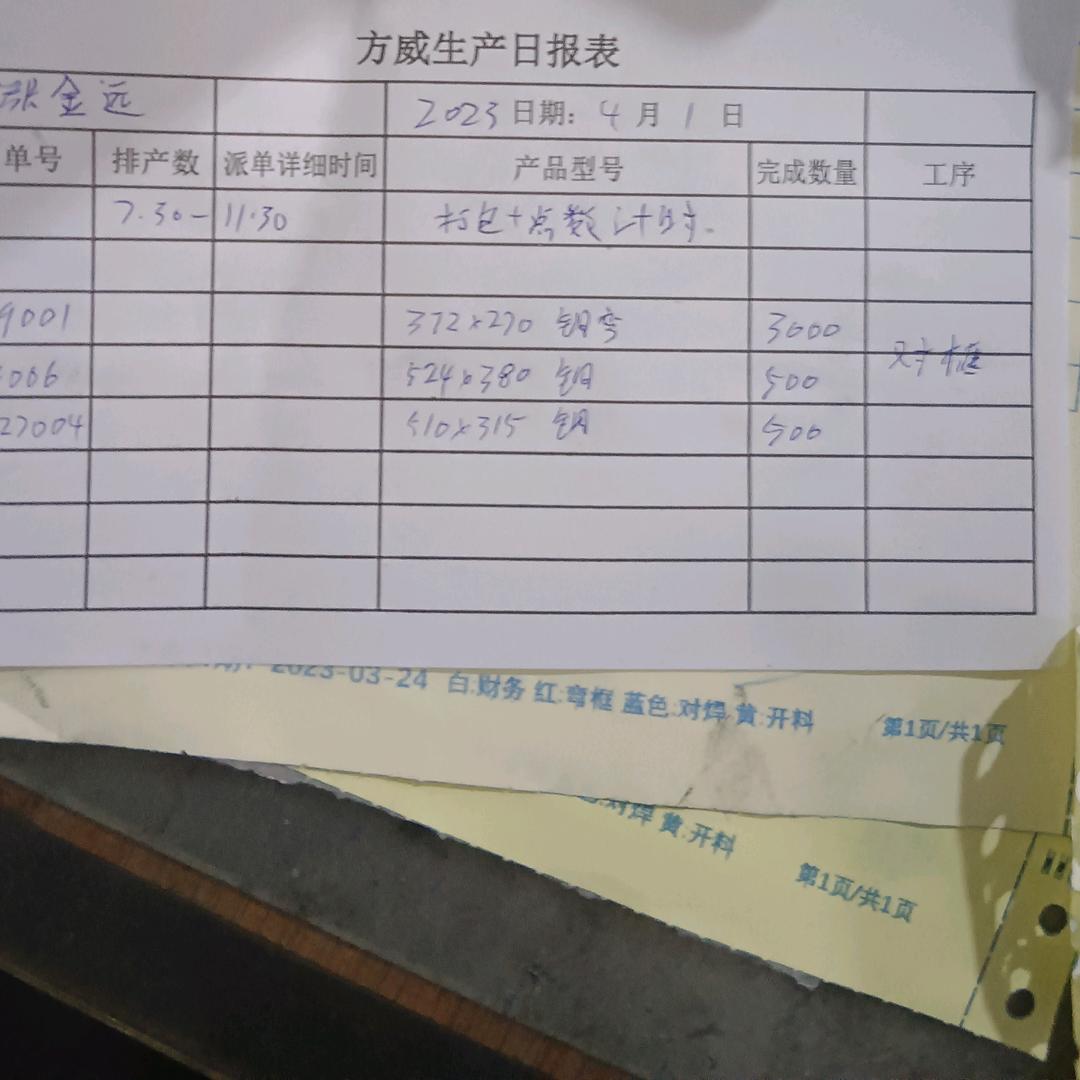 方威生产日报表
张金远 2023 日期: 4 月 1 日
单号 排产数 派单详细时间 产品型号 完成数量 工序
7.30- 11.30 打包+点数计时.
9001 372×270 钼弯 3000
对框
006 524×380 钼 500
27004 510×315 钼 500
2023-03-24 白:财务 红:弯框 蓝色:对焊 黄:开料 第1页/共1页
对焊 黄:开料 第1页/共1页